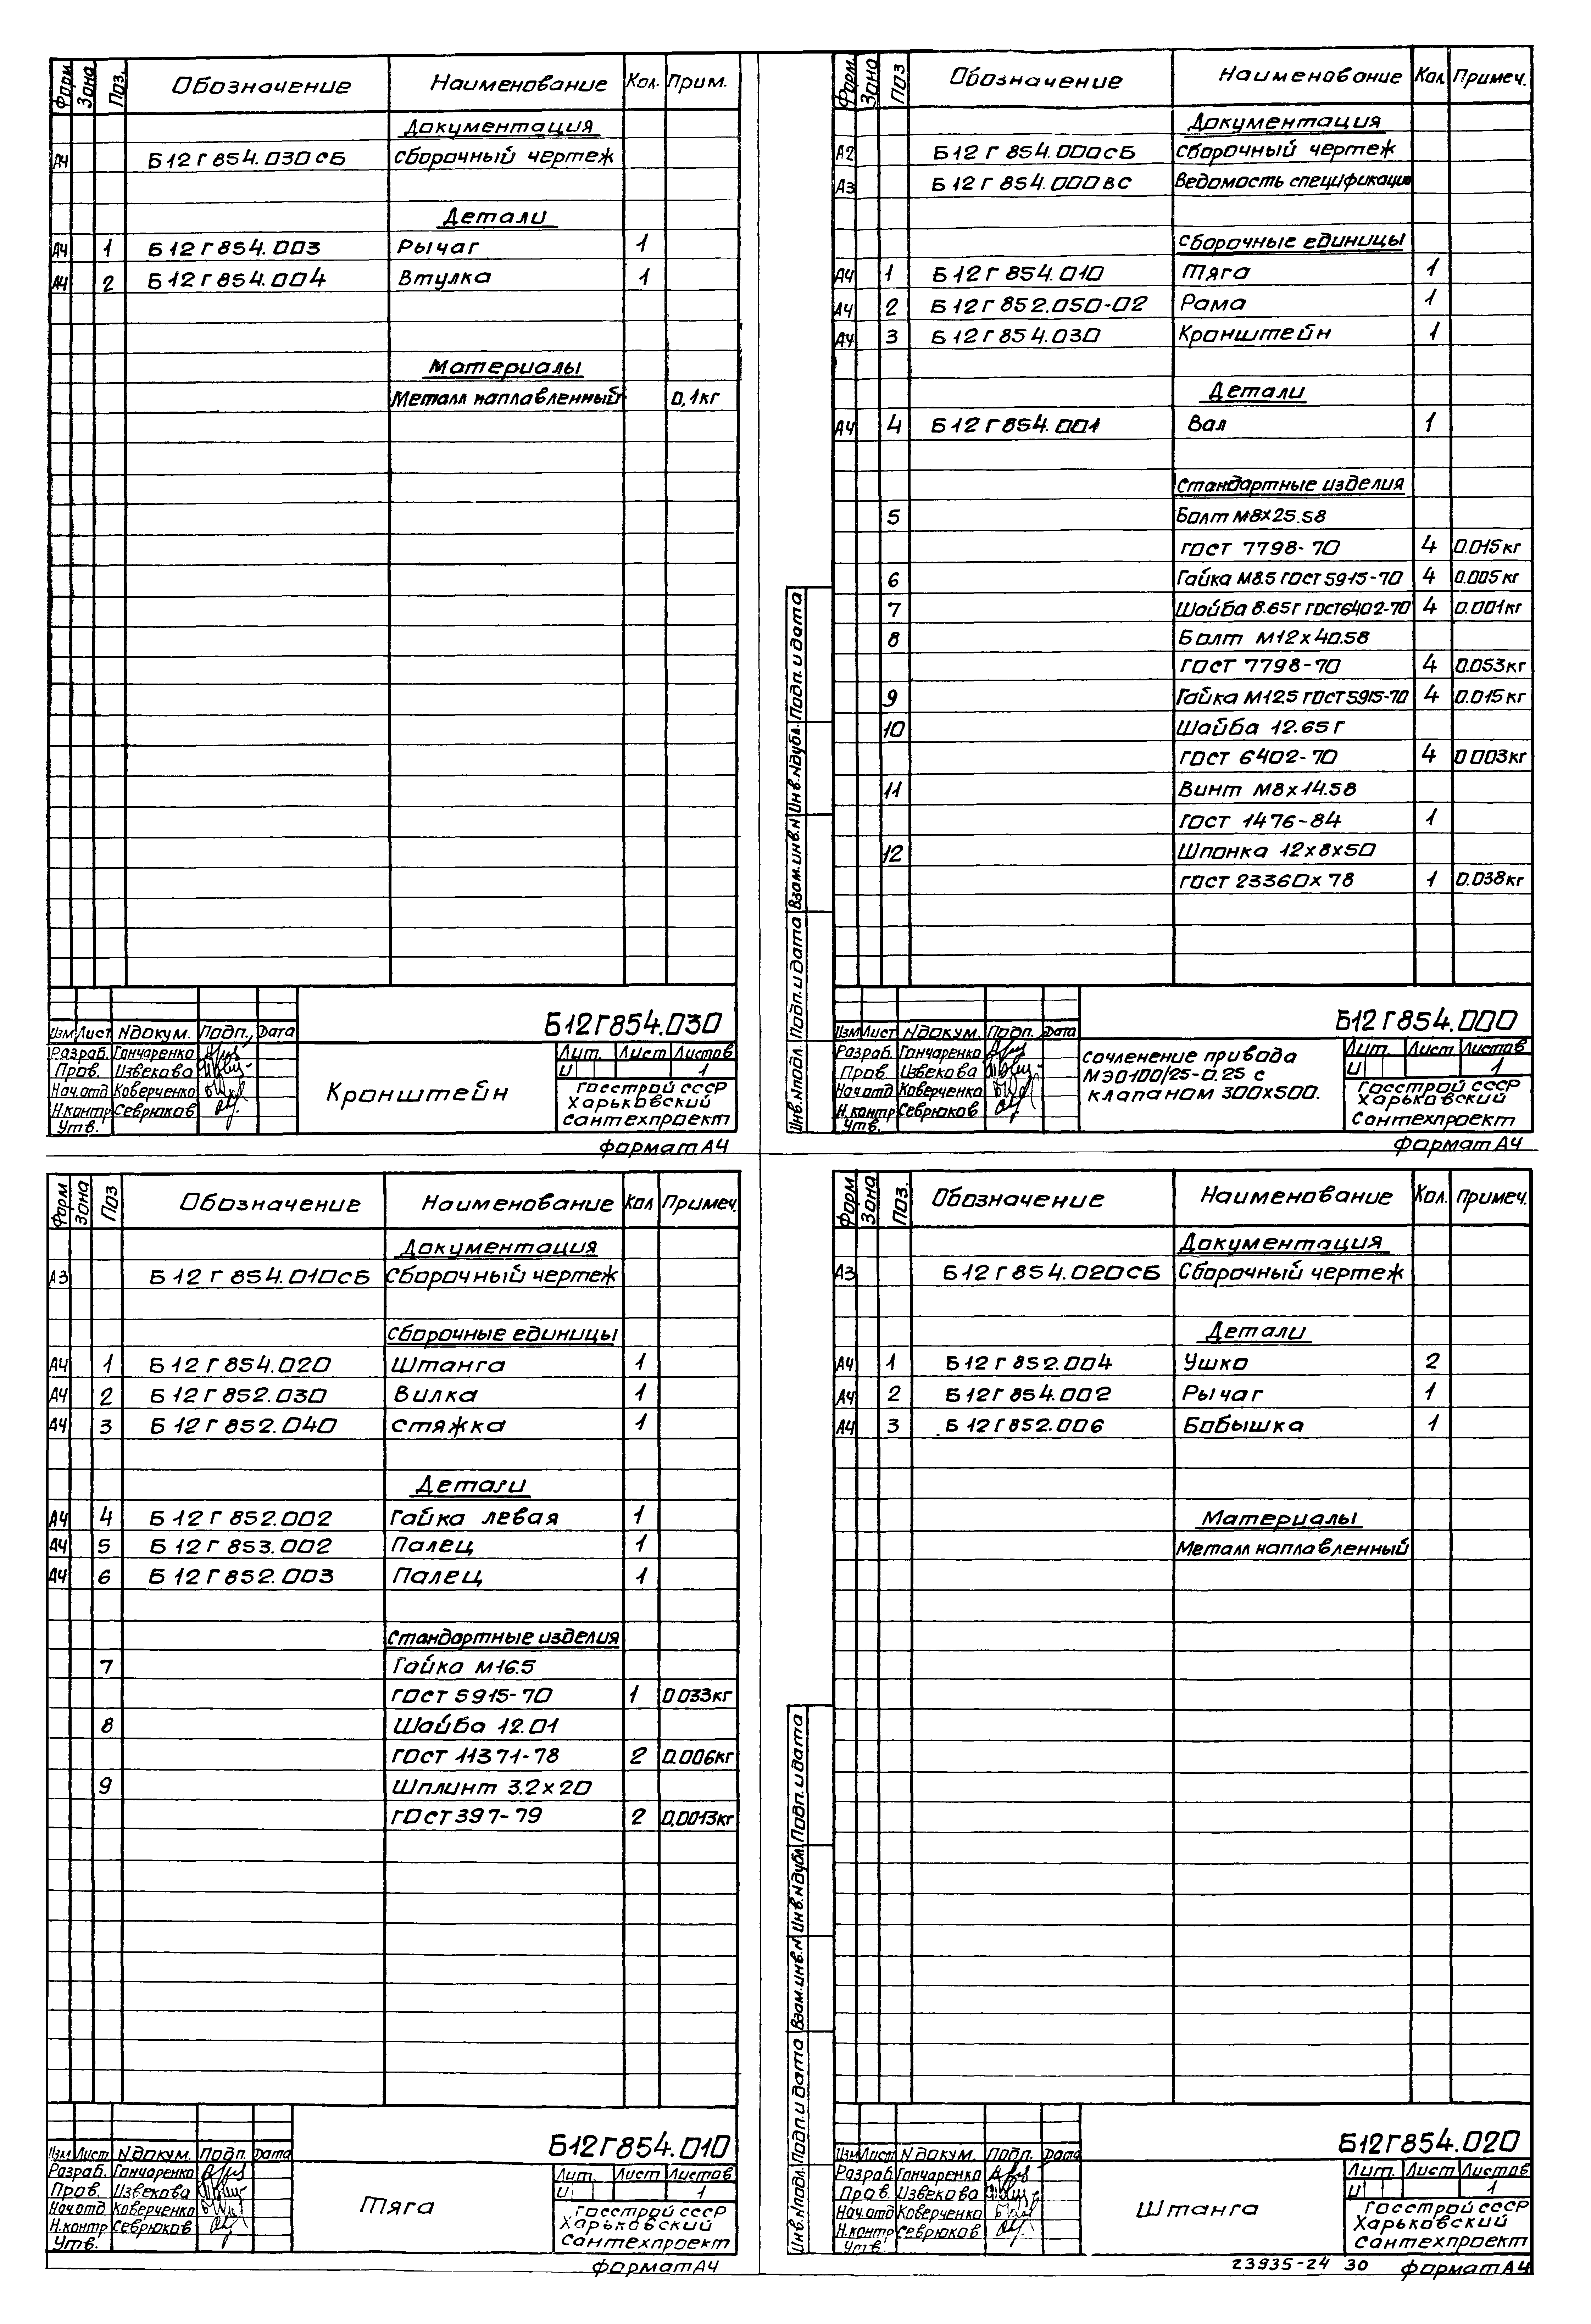 Форм. Зона Поз. Обозначение Наименование Кол. Прим.
Документация
А4 Б12Г854.030СБ Сборочный чертеж
Детали
А4 1 Б12Г854.003 Рычаг 1
А4 2 Б12Г854.004 Втулка 1
Материалы
Металл наплавленный 0,1кг
Б12Г854.030
Изм Лист N докум. Подп. Дата
Разраб. Гончаренко
Пров. Извекова
Нач.отд Коверченко
Н.контр Севрюков
Утв.
Кронштейн
Лит. Лист Листов
И 1
Госстрой СССР
Харьковский
Сантехпроект
Формат А4
Форм. Зона Поз Обозначение Наименование Кол. Примеч.
Документация
А2 Б12Г854.000СБ Сборочный чертеж
А3 Б12Г854.000ВС Ведомость спецификаций
Сборочные единицы
А4 1 Б12Г854.010 Тяга 1
А4 2 Б12Г852.050-02 Рама 1
А4 3 Б12Г854.030 Кронштейн 1
Детали
А4 4 Б12Г854.001 Вал 1
Стандартные изделия
5 Болт М8х25.58
ГОСТ 7798-70 4 0.015кг
6 Гайка М8.5 ГОСТ 5915-70 4 0.005кг
7 Шайба 8.65Г ГОСТ6402-70 4 0.001кг
8 Болт М12х40.58
ГОСТ 7798-70 4 0.053кг
9 Гайка М12.5 ГОСТ5915-70 4 0.015кг
10 Шайба 12.65Г
ГОСТ 6402-70 4 0 003кг
11 Винт М8х14.58
ГОСТ 1476-84 1
12 Шпонка 12х8х50
ГОСТ 23360х78 1 0.038кг
Инв.N подл. Подп. и дата Взам.инв.N Инв.N дубл. Подп. и дата
Б12Г854.000
Изм Лист N докум. Подп. Дата
Разраб. Гончаренко
Пров. Извекова
Нач.отд Коверченко
Н.контр Севрюков
Утв.
Сочленение привода
МЭО100/25-0.25 с
клапаном 300х500.
Лит. Лист Листов
И 1
Госстрой СССР
Харьковский
Сантехпроект
Формат А4
Форм Зона Поз Обозначение Наименование Кол Примеч.
Документация
А3 Б12Г854.010СБ Сборочный чертеж
Сборочные единицы
А4 1 Б12Г854.020 Штанга 1
А4 2 Б12Г852.030 Вилка 1
А4 3 Б12Г852.040 Стяжка 1
Детали
А4 4 Б12Г852.002 Гайка левая 1
А4 5 Б12Г853.002 Палец 1
А4 6 Б12Г852.003 Палец 1
Стандартные изделия
7 Гайка М16.5
ГОСТ 5915-70 1 0 033кг
8 Шайба 12.01
ГОСТ 11371-78 2 0.006кг
9 Шплинт 3.2х20
ГОСТ 397-79 2 0,0013кг
Б12Г854.010
Изм Лист N докум. Подп. Дата
Разраб. Гончаренко
Пров. Извекова
Нач.отд Коверченко
Н.контр Севрюков
Утв.
Тяга
Лит. Лист Листов
И 1
Госстрой СССР
Харьковский
Сантехпроект
Формат А4
Форм Зона Поз. Обозначение Наименование Кол. Примеч.
Документация
А3 Б12Г854.020СБ Сборочный чертеж
Детали
А4 1 Б12Г852.004 Ушко 2
А4 2 Б12Г854.002 Рычаг 1
А4 3 Б12Г852.006 Бобышка 1
Материалы
Металл наплавленный
Инв.N подл. Подп. и дата Взам.инв.N Инв.N дубл. Подп. и дата
Б12Г854.020
Изм Лист N докум. Подп. Дата
Разраб. Гончаренко
Пров. Извекова
Нач.отд Коверченко
Н.контр Севрюков
Утв.
Штанга
Лит. Лист Листов
И 1
Госстрой СССР
Харьковский
Сантехпроект
23935-24 30 Формат А4